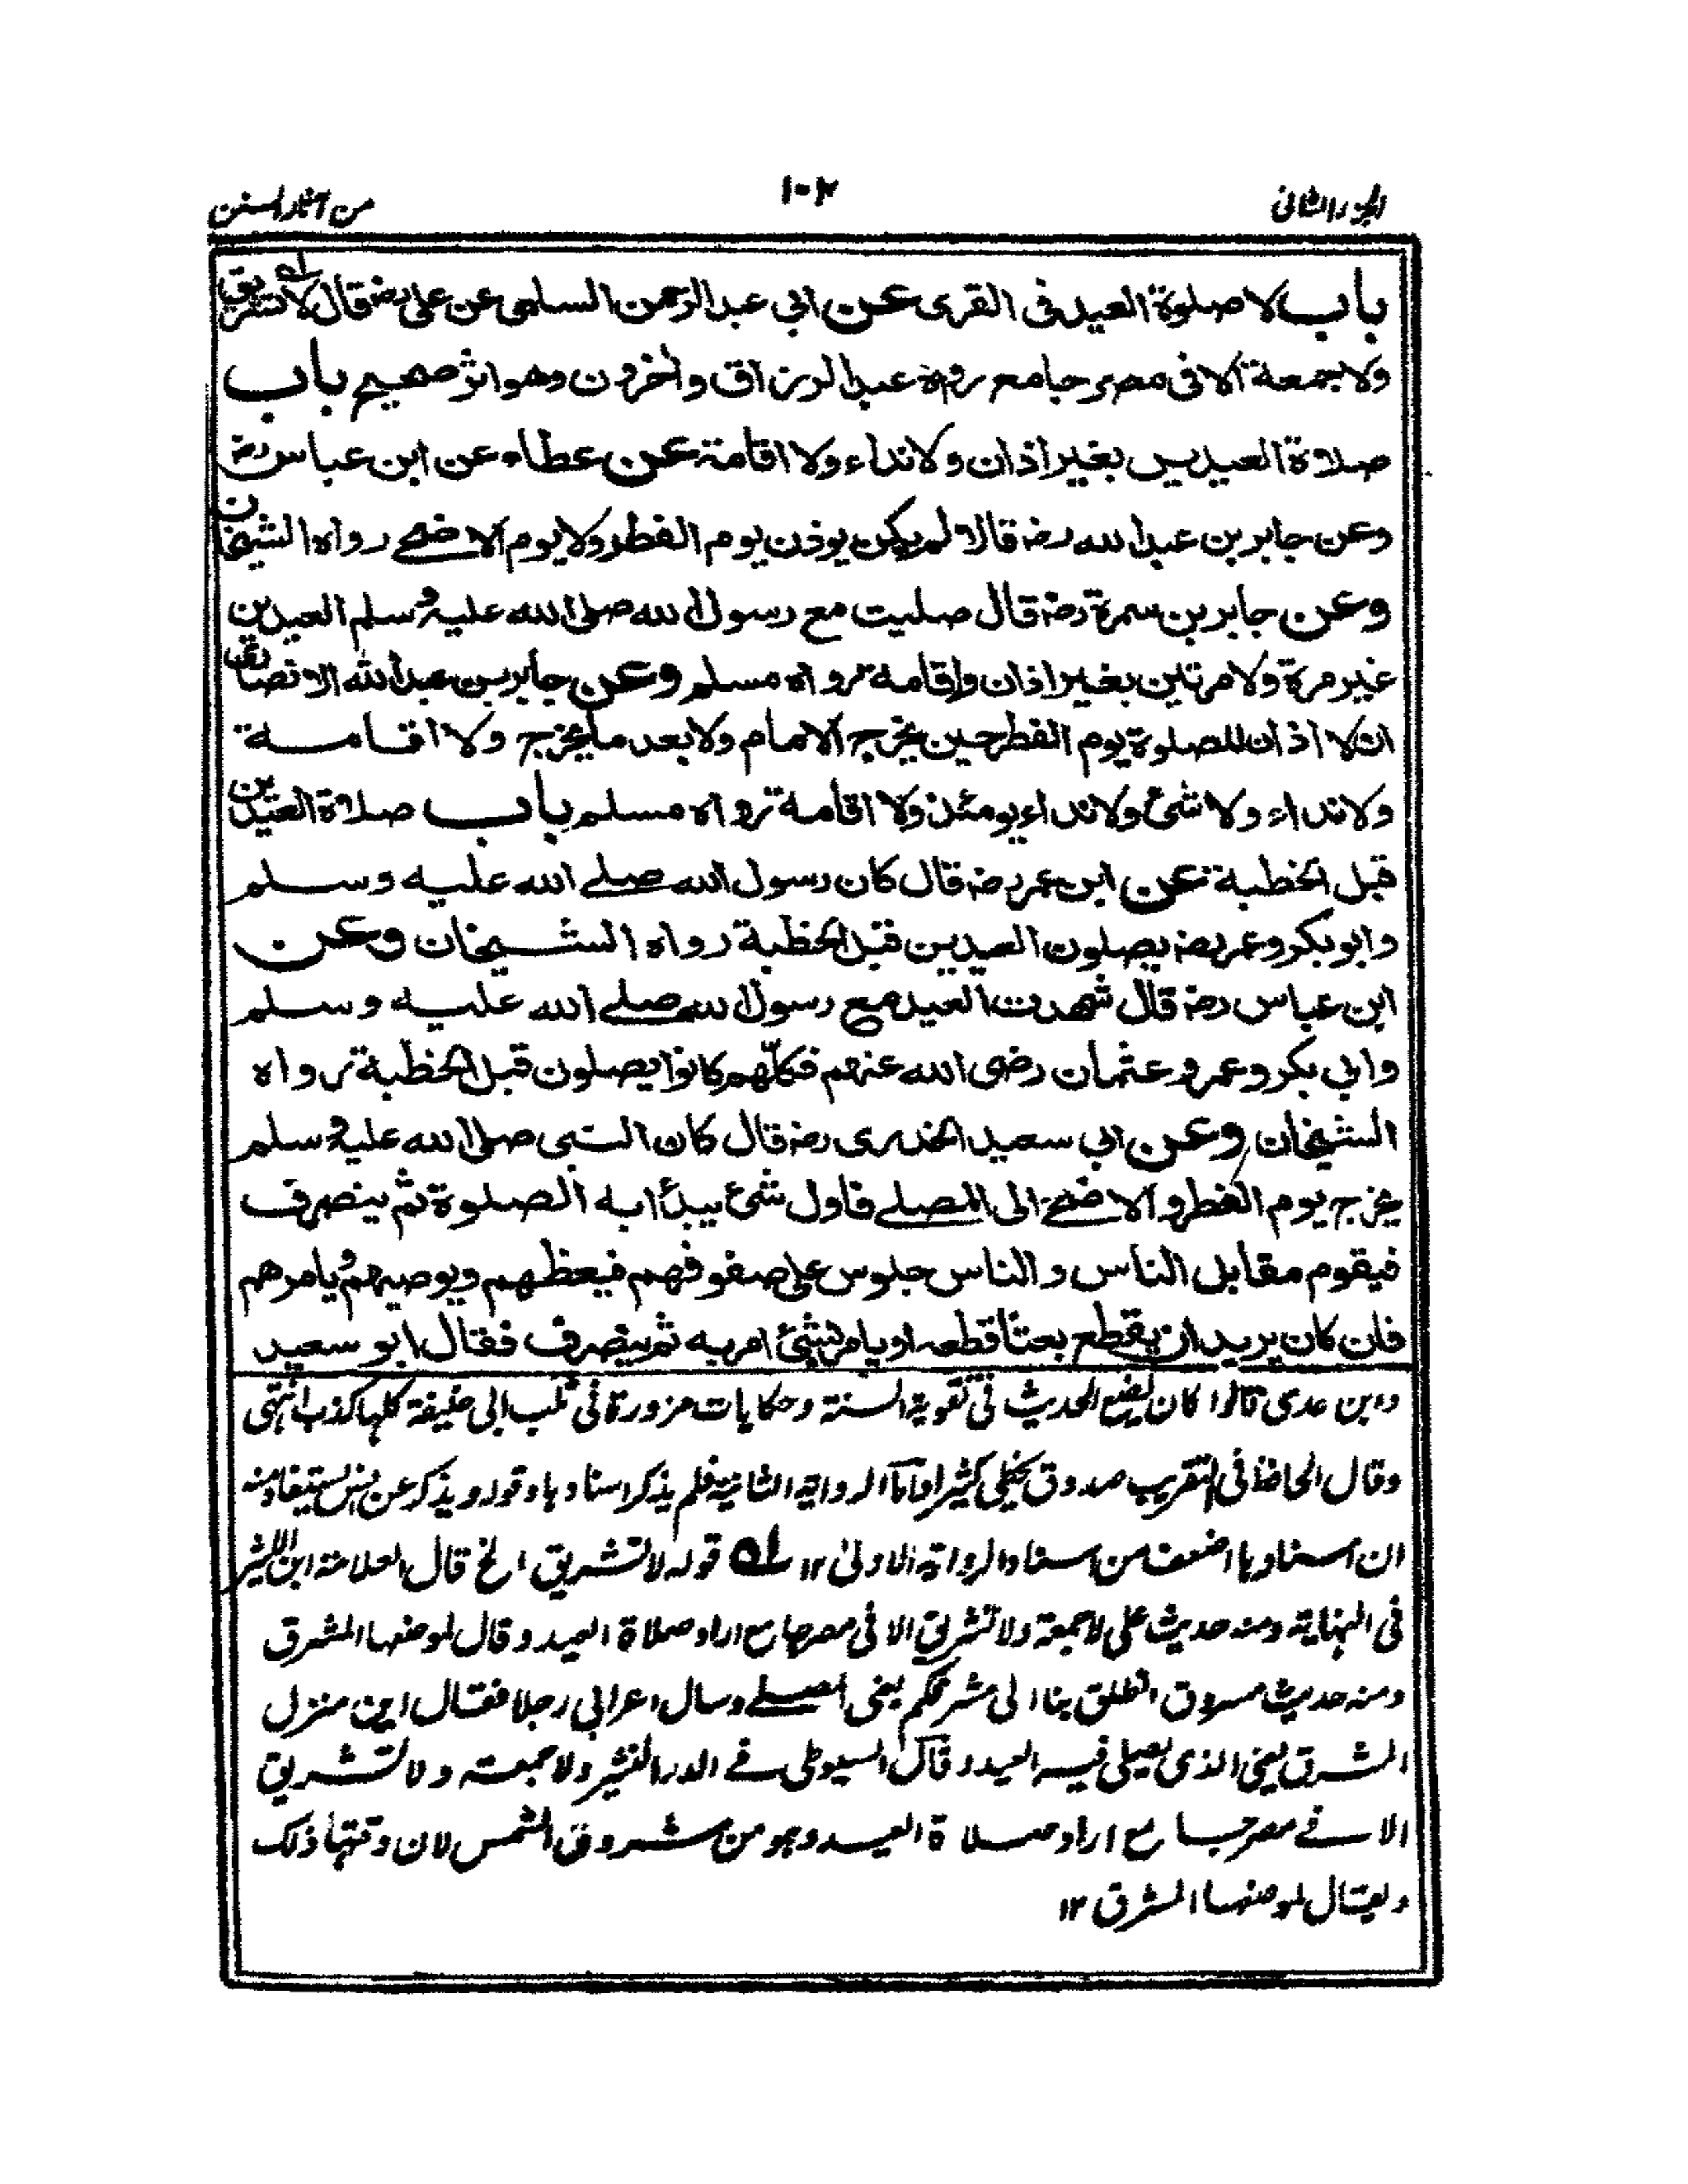 الجزء الثانى
١٠٢
من آثار السنن
باب لا صلوة العيد فى القرى عن ابي عبد الرحمن السلمى عن على رضـ قال لا تشريق
ولا جمعة الا فى مصر جامع رواه عبد الرزاق وآخرون وهو اثر صحيح باب
صلاة العيدين بغير اذان ولا نداء ولا اقامة عن عطاء عن ابن عباس رضـ
وعن جابر بن عبد الله رضـ قالا لم يكن يوذن يوم الفطر ولا يوم الاضحے رواه الشيخان
وعن جابر بن سمرة رضـ قال صليت مع رسول الله صلى الله عليه وسلم العيدين
غير مرة ولا مرتين بغير اذان واقامة رواه مسلم وعن جابر بن عبد الله الانصارى
ان لا اذان للصلوة يوم الفطر حين يخرج الامام ولا بعد ما يخرج ولا اقامة
ولا نداء ولا شئ ولا نداء يومئذ ولا اقامة رواه مسلم باب صلاة العيدين
قبل الخطبة عن ابن عمر رضـ قال كان رسول الله صلے الله عليه وسلم
وابو بكر وعمر رضـ يصلون العيدين قبل الخطبة رواه الشيخان وعن
ابن عباس رضـ قال شهدت العيد مع رسول الله صلے الله عليه وسلم
وابي بكر وعمر وعثمان رضى الله عنهم فكلّهم كانوا يصلون قبل الخطبة رواه
الشيخان وعن ابي سعيد الخدرى رضـ قال كان النبى صلى الله عليه وسلم
يخرج يوم الفطر والاضحے الى المصلے فاول شئ يبدأ به الصلوة ثم ينصرف
فيقوم مقابل الناس والناس جلوس على صفوفهم فيعظهم ويوصيهم ويامرهم
فان كان يريد ان يقطع بعثا قطعه او يامر بشئ امر به ثم ينصرف فقال ابو سعيد
وابن عدى قالوا كان يضع الحديث فى تقوية السنة وحكايات مزورة فى ثلب ابى حنيفة كلها كذب انتهى
وقال الحافظ فى التقريب صدوق يخطى كثيرا واما الرواية الثانية فلم يذكر اسنادها وقوله ويذكر عن يستفاد منه
ان اسنادها اضعف من اسناد الرواية الاولىٰ ١٢ ؎ قوله لا تشريق الخ قال العلامة ابن الاثير
فى النهاية ومنه حديث على لا جمعة ولا تشريق الا فى مصر جامع اراد صلاة العيد وقال لموضعها المشرق
ومنه حديث مسروق انطلق بنا الى مشرقكم يعنى المصلے وسال اعرابي رجلا فقال اين منزل
المشرق يعنى الذى يصلى فيه العيد وقال السيوطى فے الدر النثير ولا جمعة ولا تشريق
الا فے مصر جامع اراد صلاة العيد وهو من شروق الشمس لان وقتها ذلك
ويقال لموضعها المشرق ١٢